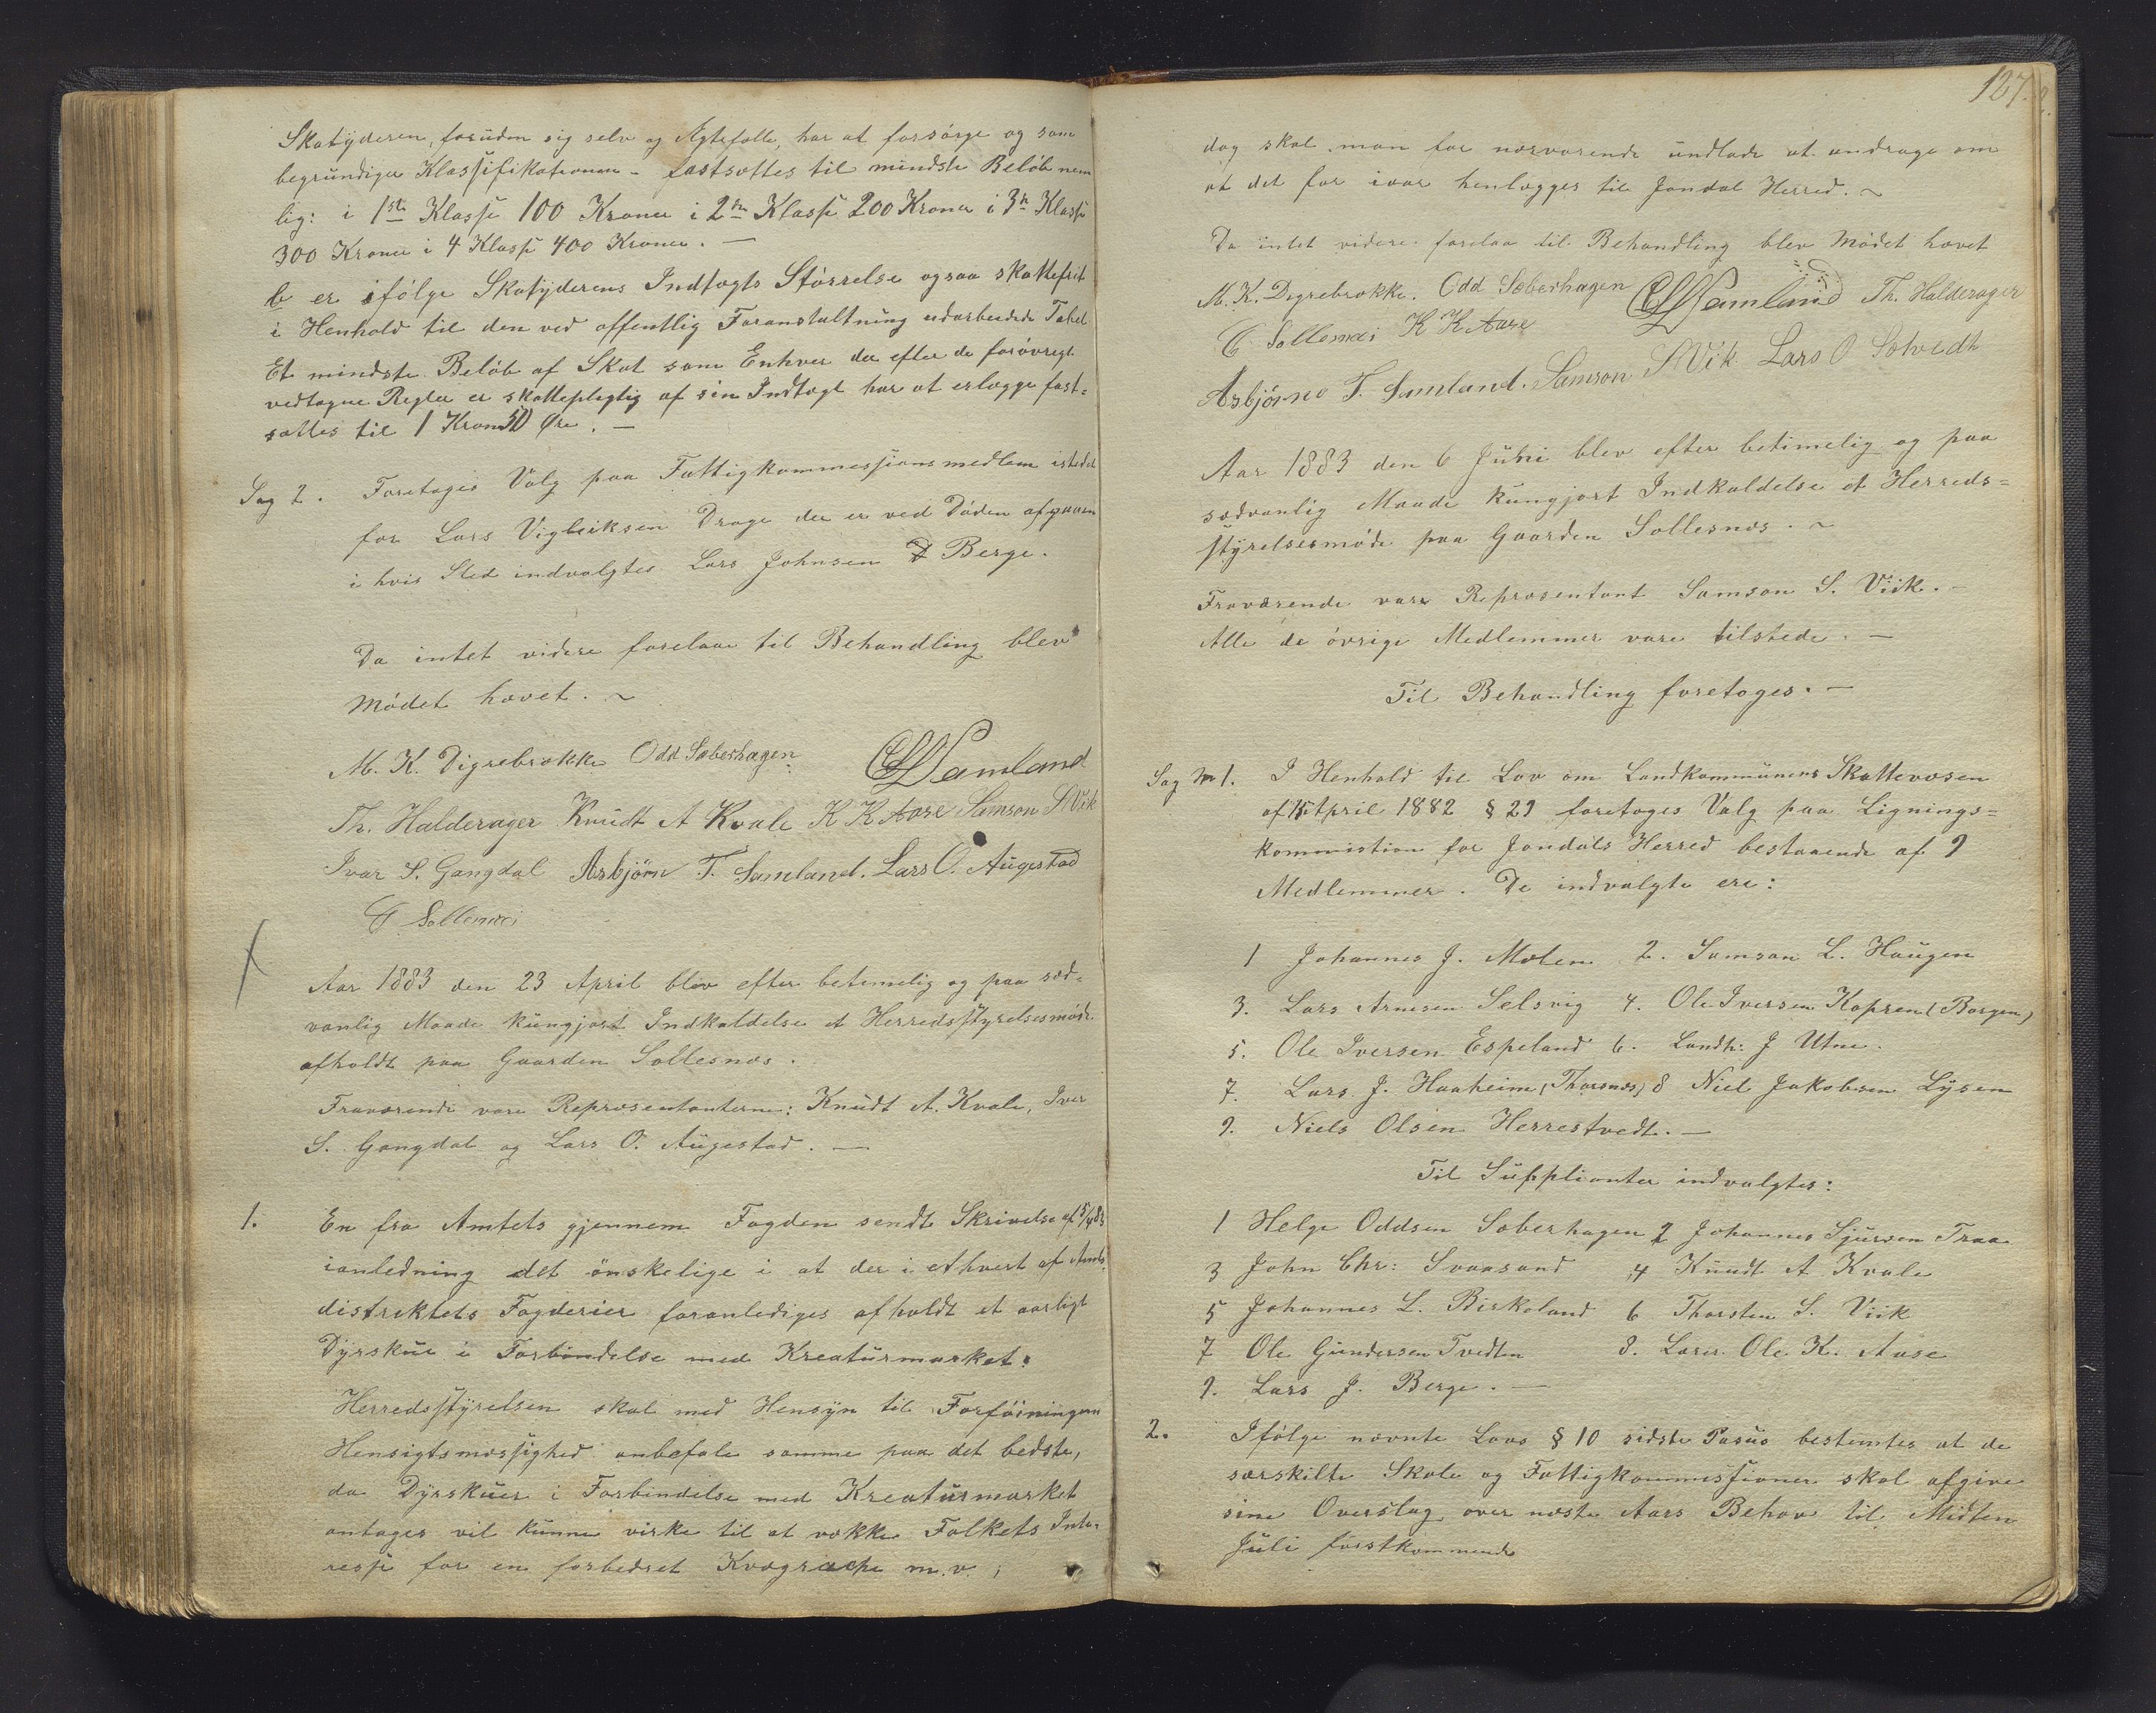 Skatÿderen, foruden sig selv og Ægtefælle, har at forsörge og som
begrundiger Klassifikationen - fastsættes til mindste Belöb nem
lig: i 1ste Klasse 100 Kroner i 2den Klasse 200 Kroner i 3de Klasse
300 Kroner i 4 Klasse 400 Kroner. —
b er ifölge Skatÿderens Indtægts Störrelse ogsaa skattefrit
i Henhold til den ved offentlig Foranstaltning udarbeidede Tabel
Et mindste Belöb af Skat som Enhver der efter de forövrigt
vedtagne Regler er skattepligtig af sin Indtægt har at erlægge fast-
sættes til 1 Krone 50 Øre. —
Sag 2. Foretoges Valg paa Fattigkommessionsmedlem istedet
for Lars Vigleiksen Drage der er ved Döden afgaaen
i hvis Sted indvalgtes Lars Johnsen Berge.
Da intet videre forelaae til Behandling blev
Mödet hævet. ~
M. K. Digrebrække Odd Sæberhagen Samland
Th. Halderager Knudt A Kvale K K Aase Samson S Vik
Ivar S. Gangdal Asbjörn T. Samland. Lars O. Augestad
Sollesnæs
Aar 1883 den 23 April blev efter betimelig og paa sæd-
vanlig Maade kungjort Indkaldelse et Herredsstyrelsesmöde
afholdt paa Gaarden Sollesnæs.
Fraværende vare Repræsentanterne: Knudt A. Kvale, Iver
S. Gangdal og Lars O. Augestad. —
1. En fra Amtets gjennem Fogden sendt Skrivelse af 5/4 83
ianledning det önskelige i at der i ethvert af Amts-
distriktets Fogderier foranlediges afholdt et aarligt
Dÿrskue i Forbindelse med Kreaturmarket:
Herredsstÿrelsen skal med Hensÿn til Forföiningens
Hensigtsmæssighed anbefale samme paa det bedste,
da Dÿrskuer i Forbindelse med Kreaturmarket
antages vil kunne virke til at vække Folkets Inte-
resse for en forbedret Kvægrace m.v.;
127.
dog skal man for nærværende undlade at andrage om
at det for iaar henlægges til Jondal Herred. ~
Da intet videre forelaa til Behandling blev Mödet hævet
M. K. Digrebrække. Odd Sæberhagen Samland Th. Halderager
Sollesnæs K K Aase
Asbjörn T. Samland. Samson S Vik Lars O Solvedt
Aar 1883 den 6 Juni blev efter betimelig og paa
sædvanlig Maade kungjort Indkaldelse et Herreds-
stÿrelsesmöde paa Gaarden Sollesnæs. ~
Fraværende vare Repræsentant Samson S. Viik. —
Alle de övrige Medlemmer vare tilstede. —
Til Behandling foretoges. —
Sag No 1. I Henhold til Lov om Landkommunens Skattevæsen
af 15 April 1882 § 29 foretoges Valg paa Lignings-
kommistion for Jondals Herred bestaaende af 9
Medlemmer. De indvalgte ere:
1 Johannes J. Mælen 2. Samson L. Haugen
3. Lars Arnesen Selsvig 4. Ole Iversen Kopren (Borgen)
5. Ole Iversen Espeland 6. Landh: J Utne.
7. Lars J. Haaheim, (Thorsnæs) 8 Niel Jakobsen Lÿsen
9. Niels Olsen Herrestvedt. —
Til Supplianter indvalgtes:
1 Helge Oddsen Sæberhagen 2 Johannes Sjursen Traa
3 John Chr: Svaasand 4 Knudt A Kvale
5 Johannes L. Birkeland 6 Thorsten S. Viik
7 Ole Gundersen Tvedten 8. Lærer Ole K. Aase
9. Lars J. Berge. —
2. Ifölge nævnte Lovs § 10 sidste Pasus bestemtes at de
særskilte Skole og Fattigkommissioner skal afgive
sine Overslag over næste Aars Behov til Midten
Juli förstkommende